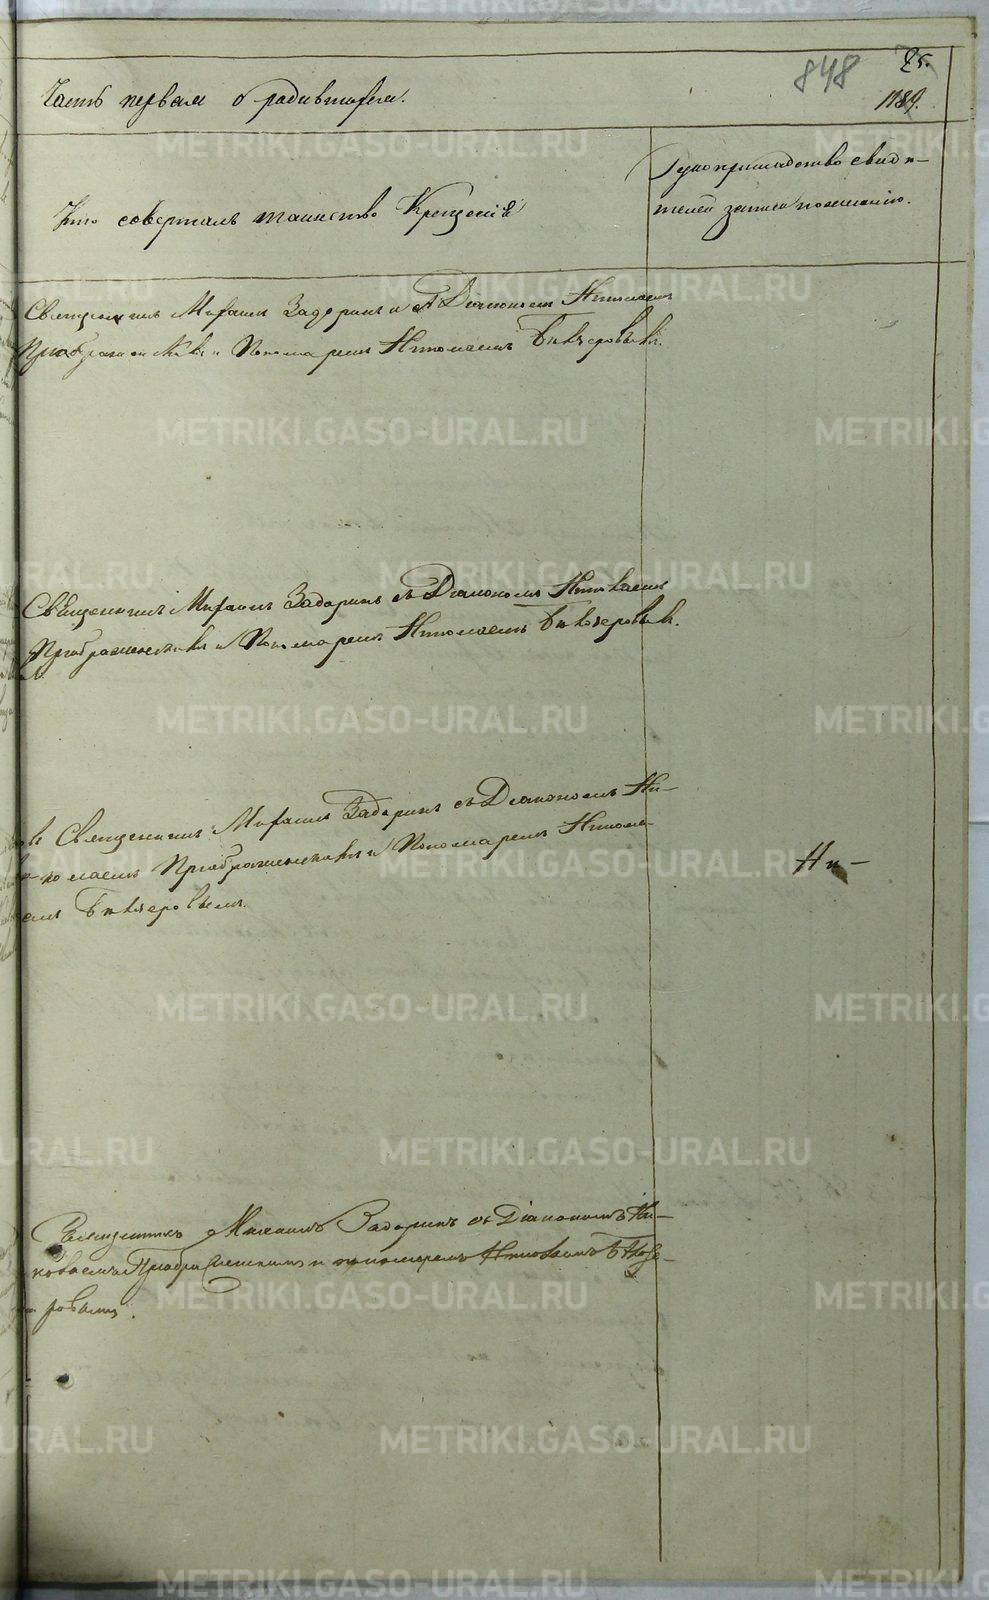 848
25.
1189.
Часть первая о родившихся.
Кто совершалъ таинство Крещенія
Рукоприкладство свидѣ-
телей записи по желанію.
Священникъ Михаилъ Задоринъ и съ Діакономъ Николаемъ
Преображенскимъ и Пономаремъ Николаемъ
Священникъ Михаилъ Задоринъ съ Діакономъ Николаемъ
Преображенскимъ и Пономаремъ Николаемъ
Священникъ Михаилъ Задоринъ съ Діакономъ Ни-
колаемъ Преображенскимъ и Пономаремъ Никола-
емъ
Ни-
Священникъ Михаилъ Задоринъ съ Діакономъ Ни-
колаемъ Преображенскимъ и пономаремъ Николаемъ
ровымъ.
METRIKI.GASO-URAL.RU